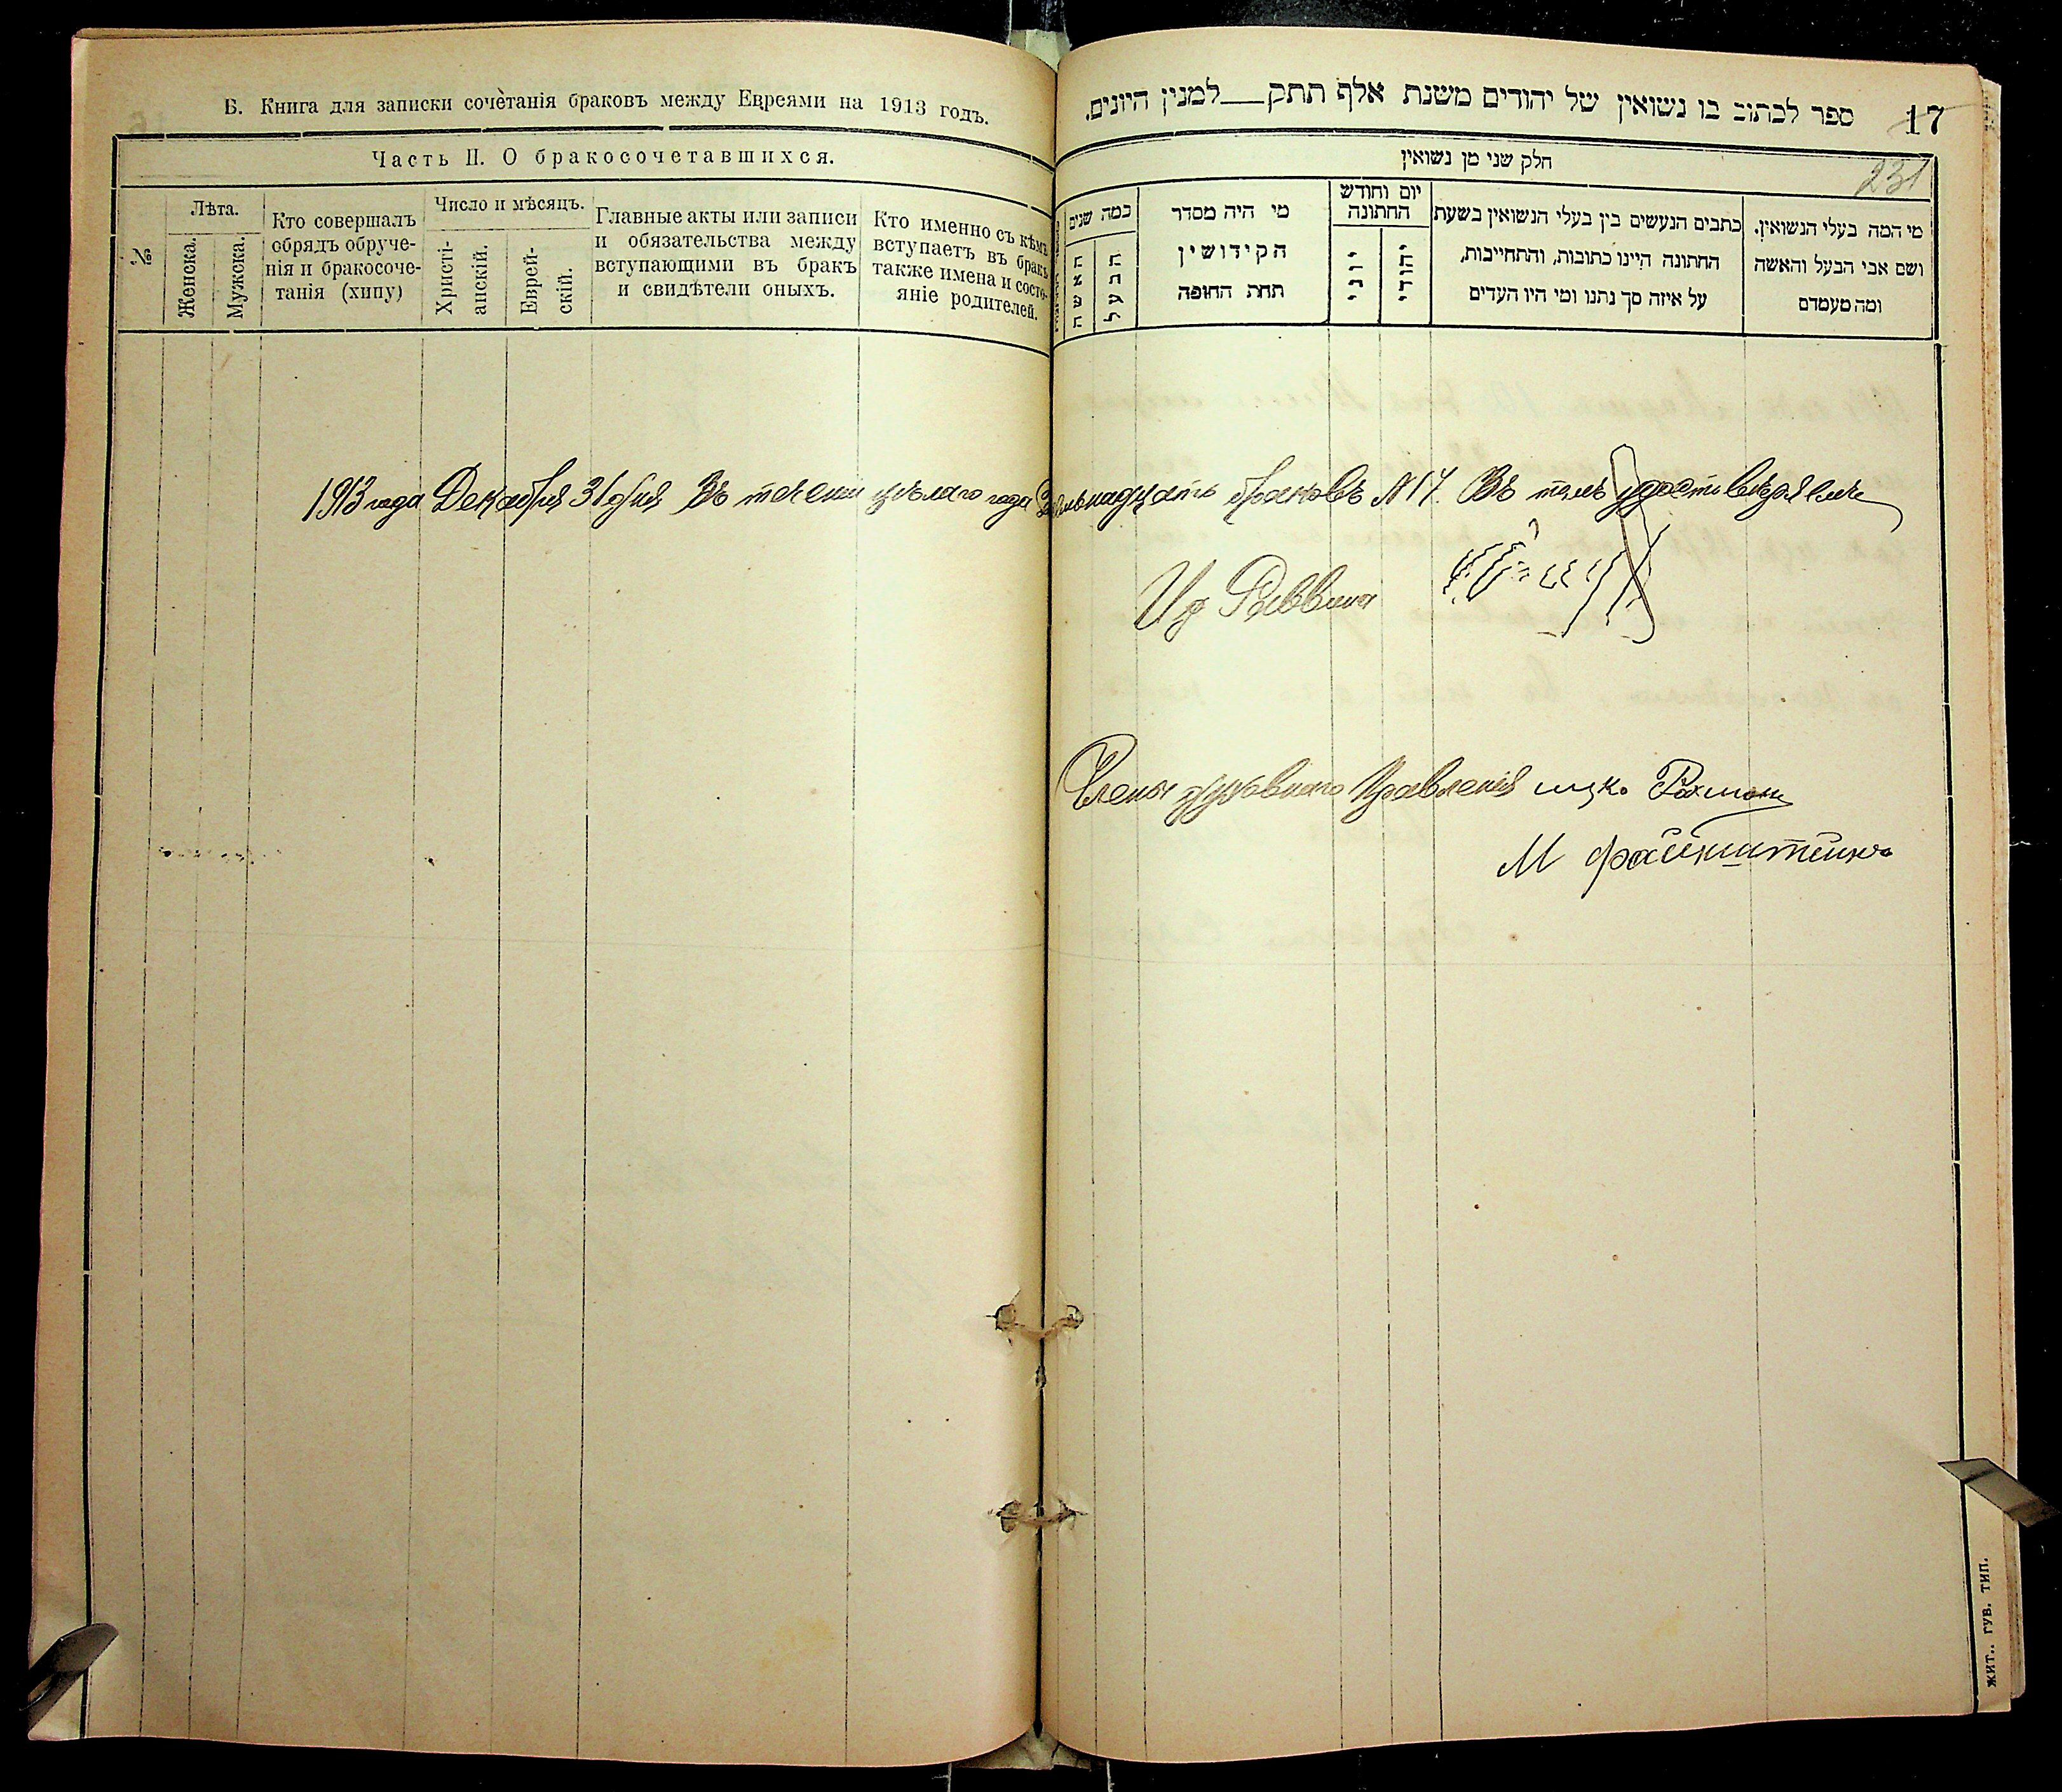 Б. Книга для записки сочетанія браковъ между Евреями на 1913 годъ.
Часть II. О бракосочетавшихся.
№
Лѣта.
Женска.
Мужска.
Кто совершалъ
обрядъ обруче-
нія и бракосоче-
танія (хипу)
Число и мѣсяцъ.
Христі-
анскій.
Еврей-
скій.
Главные акты или записи
и обязательства между
вступающими въ бракъ
и свидѣтели оныхъ.
Кто именно съ кѣмъ
вступаетъ въ бракъ
также имена и состо-
яніе родителей.
17
ספר לכתוב בו נשואין של יהודים משנת אלף תתק__למנין היונים.
חלק שני מן נשואין
231
מי המה בעלי הנשואין.
ושם אבי הבעל והאשה
ומה מעמדם
כתבים הנעשים בין בעלי הנשואין בשעת
החתונה היינו כתובות, והתחייבות,
על איזה סך נתנו ומי היו העדים
יום וחודש
החתונה
יהודי
יוני
מי היה מסדר
הקידושין
תחת החופה
כמה שנים
הבעל
האשה
1913 года Декабря 31 дня Въ теченіи цѣлаго года браковъ № 17. Въ томъ удостовѣряемъ
Раввина
Члены духовнаго Правленія ицко Рохман
М файнштейнъ
ЖИТ. ГУВ. ТИП.